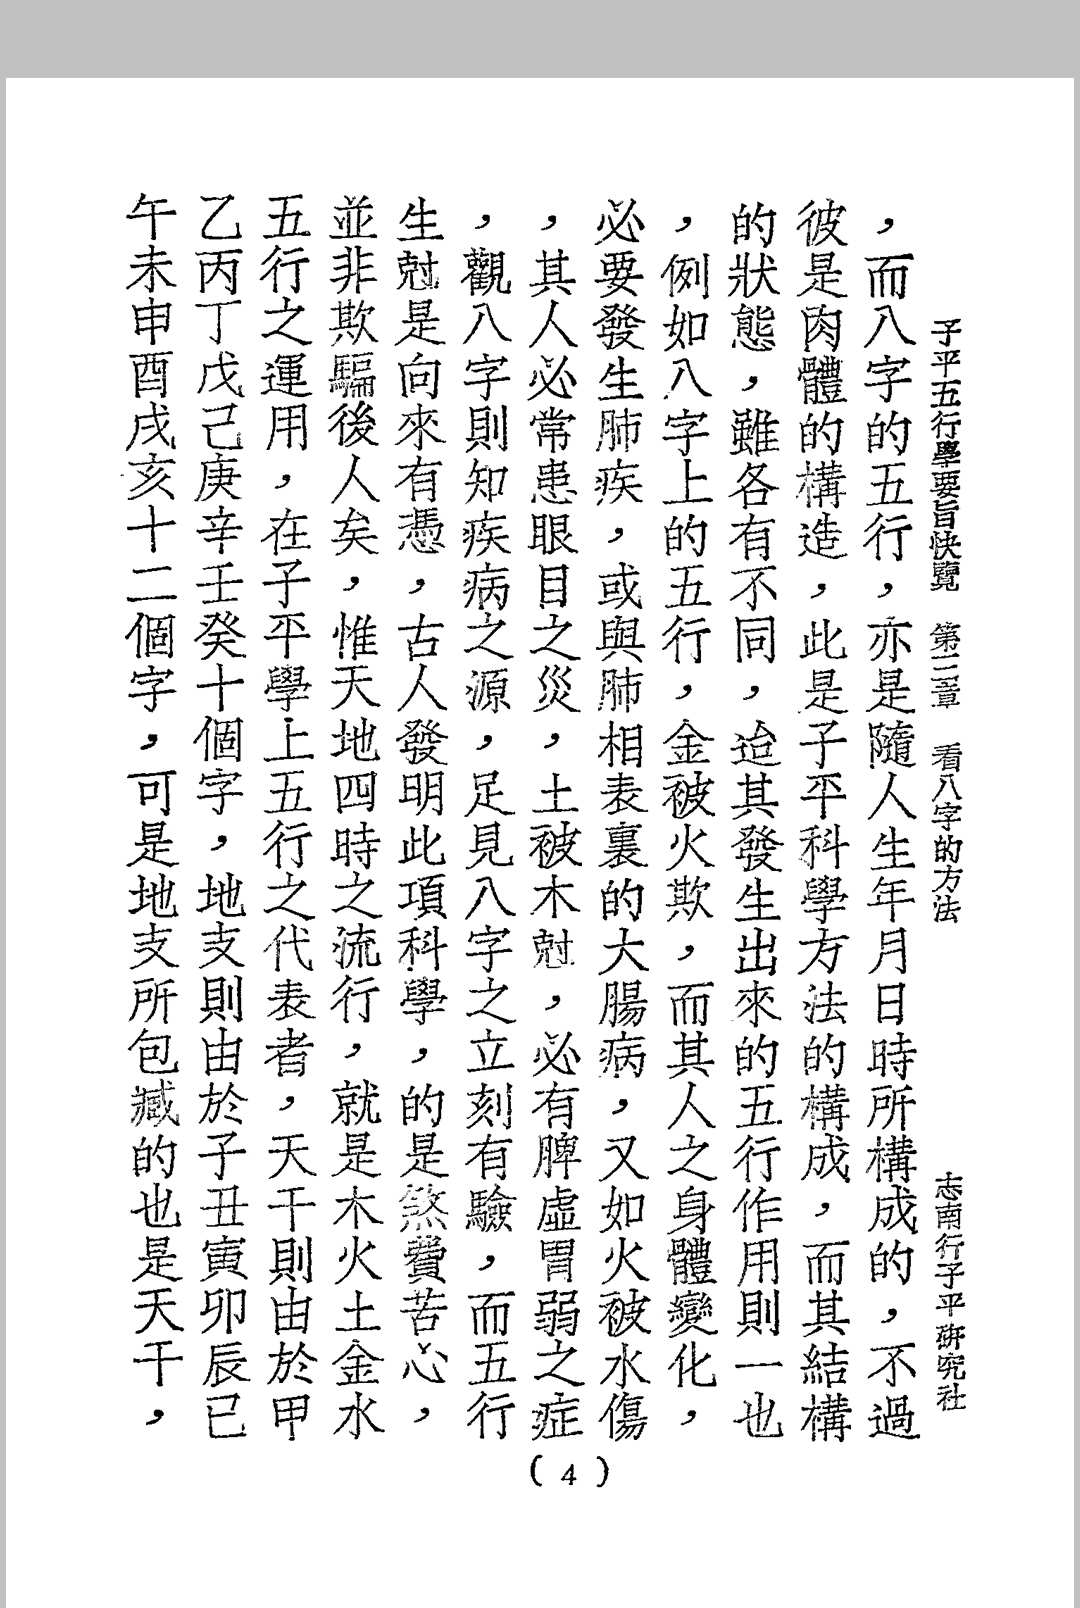 子平五行學要旨快覽　第二章　看八字的方法　志南行子平研究社
，而八字的五行，亦是隨人生年月日時所構成的，不過
彼是肉體的構造，此是子平科學方法的構成，而其結構
的狀態，雖各有不同，迨其發生出來的五行作用則一也
，例如八字上的五行，金被火欺，而其人之身體變化，
必要發生肺疾，或與肺相表裏的大腸病，又如火被水傷
，其人必常患眼目之災，土被木尅，必有脾虛胃弱之症
，觀八字則知疾病之源，足見八字之立刻有驗，而五行
生尅是向來有憑，古人發明此項科學，的是煞費苦心，
並非欺騙後人矣，惟天地四時之流行，就是木火土金水
五行之運用，在子平學上五行之代表者，天干則由於甲
乙丙丁戊己庚辛壬癸十個字，地支則由於子丑寅卯辰已
午未申酉戌亥十二個字，可是地支所包藏的也是天干，
(4)